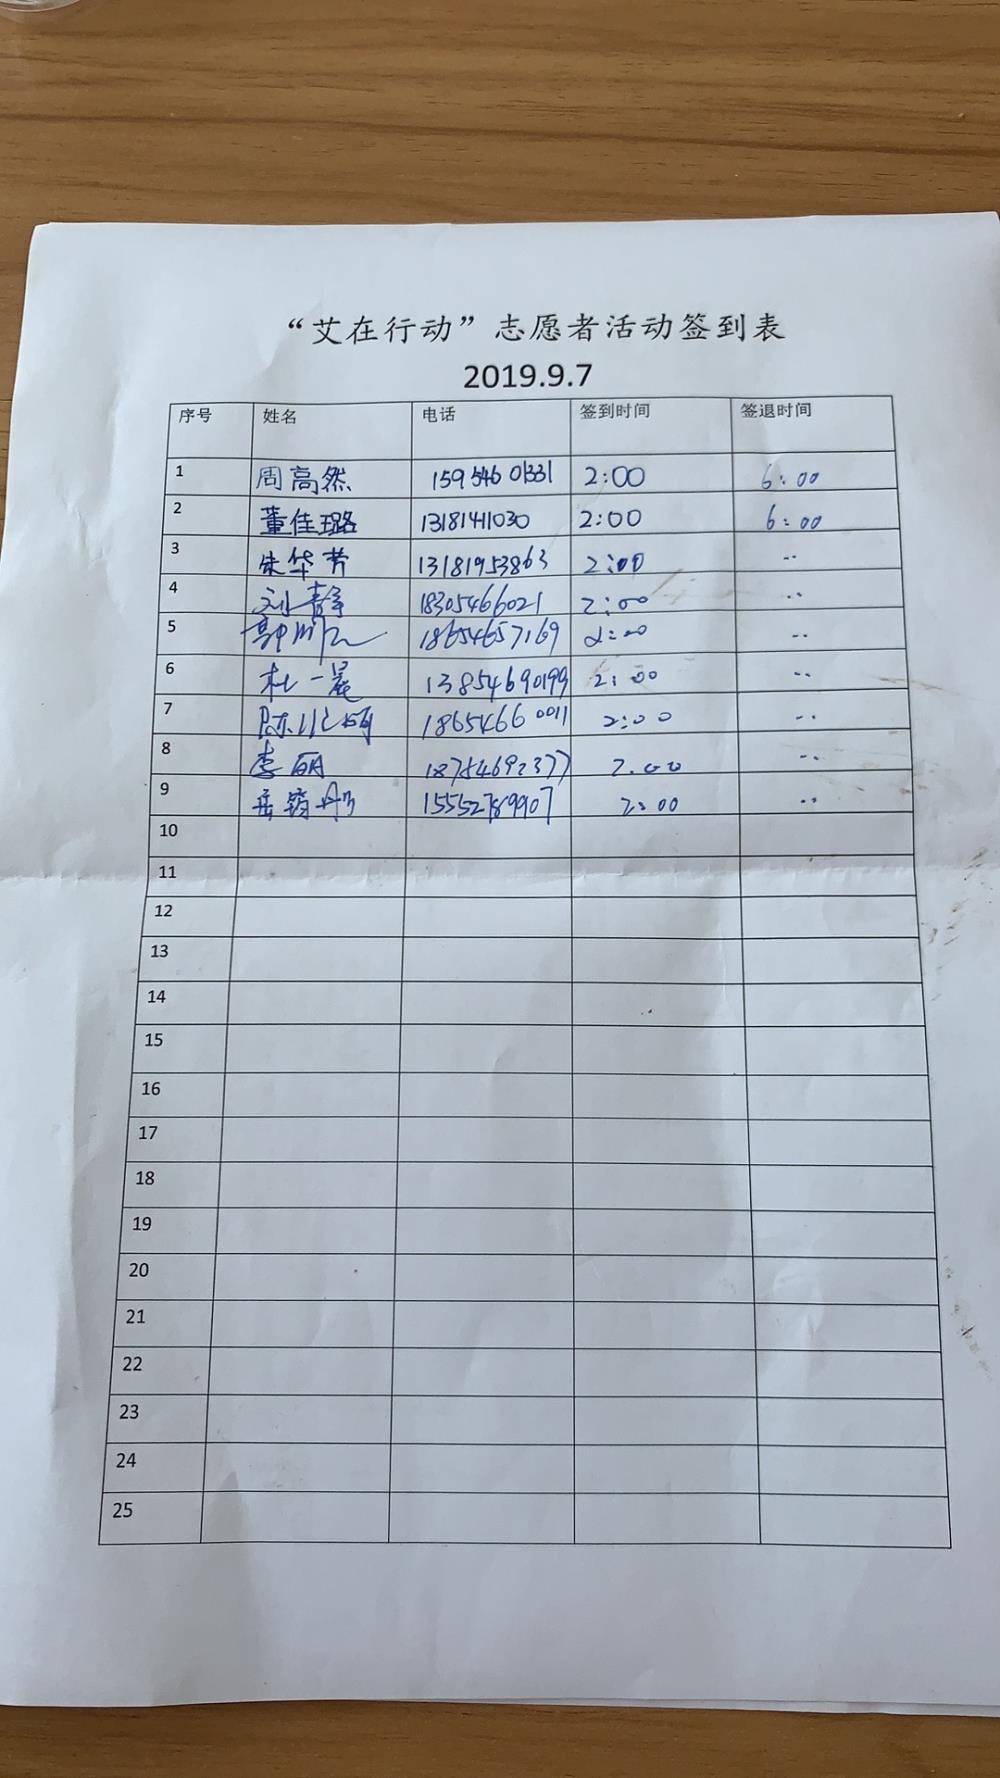 “艾在行动”志愿者活动签到表
2019.9.7
序号 姓名 电话 签到时间 签退时间
1 周高然 15954601331 2:00 6:00
2 董佳璐 13181411030 2:00 6:00
3 朱华芳 13181953863 2:00 ··
4 刘静 18305466021 2:00 ··
5 18654657169 2:00 ··
6 杜一晨 13854690199 2:00 ··
7 陈 18654660011 2:00 ··
8 李丽 18754692377 2:00 ··
9 15552789907 2:00 ··
10
11
12
13
14
15
16
17
18
19
20
21
22
23
24
25